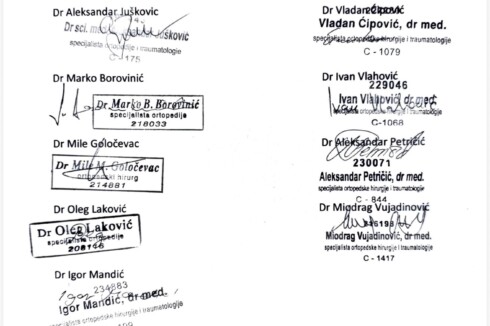 Dr Aleksandar Jušković
Dr sci. med. Jušković
specijalista ortopedije i traumatologije
C - 175
Dr Marko Borovinić
Dr Marko B. Borovinić
specijalista ortopedije
218033
Dr Mile Goločevac
Dr Mile M. Goločevac
ortopedski hirurg
214881
Dr Oleg Laković
Dr Oleg Laković
specijalista ortopedije
208146
Dr Igor Mandić
234883
Igor Mandić, dr med.
specijalista ortopedske hirurgije i traumatologije
Dr Vladan Ćipović
Vladan Ćipović, dr med.
specijalista ortopedske hirurgije i traumatologije
C - 1079
Dr Ivan Vlahović
229046
Ivan Vlahović, dr med.
specijalista ortopedske hirurgije i traumatologije
C-1068
Dr Aleksandar Petričić
230071
Aleksandar Petričić, dr med.
specijalista ortopedske hirurgije i traumatologije
C - 844
Dr Miodrag Vujadinović
Miodrag Vujadinović, dr med.
specijalista ortopedske hirurgije i traumatologije
C - 1417